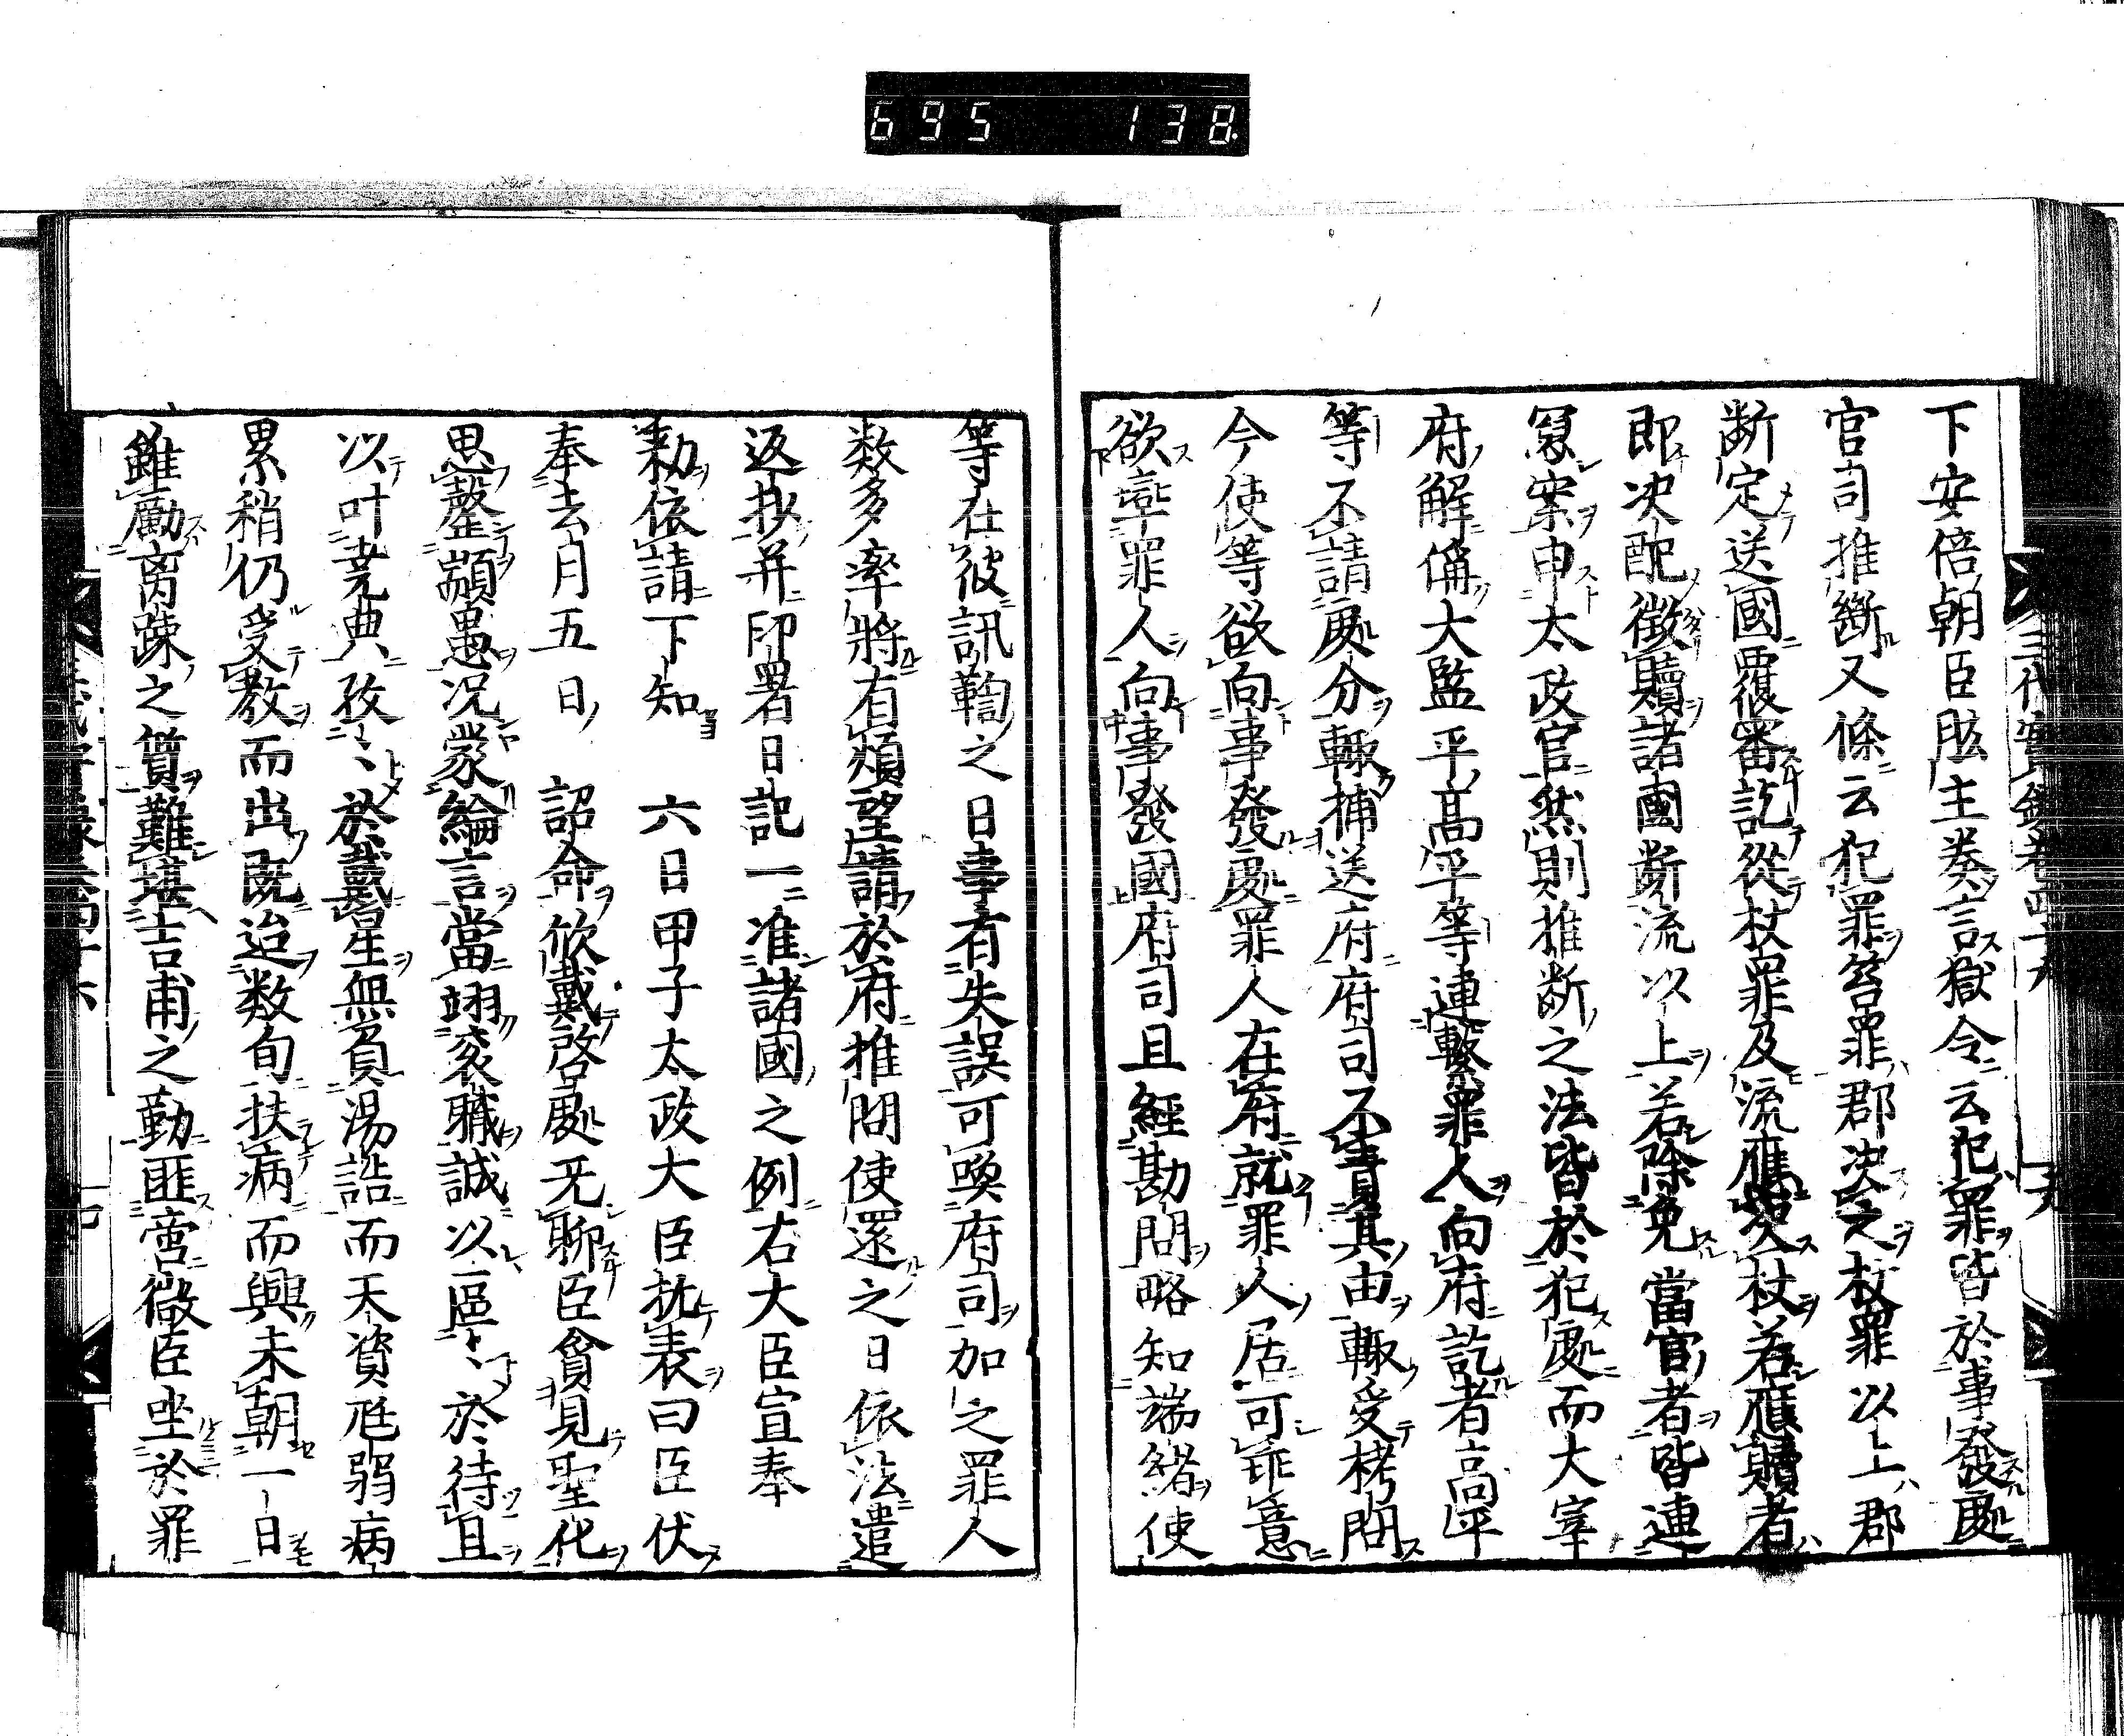 695 138
下安倍朝臣肱主奏言獄令云犯罪皆於事發處
官司推斷又條云犯罪笞罪郡决之杖罪以上郡
断定送國覆審訖從杖罪及流應决杖若應贖者
即决配徴贖諸國断流以上若除免當官者皆連
冩案申太政官然則推断之法皆於犯處而大宰
府解偁大監平高平等連繋罪人向府訖者高平
等不請處分輙捕送府府司不責其由輙受栲問
今使等欲向事發處罪人在府就罪人居可乖意
欲率罪人向事發國府司且經勘問略知端緒使
等在彼訊鞫之日事有失誤可喚府司加之罪人
数多率將有煩望請於府推問使還之日依法遣
返抄并印署日記一准諸國之例右大臣宣奉
勅依請下知 六日甲子太政大臣抗表曰臣伏
奉去月五日 詔命欣戴啓處无聊臣貧見聖化
思罄顓愚况蒙綸言當翊衮職誠以區〻於待且
以叶尭典孜〻於戴星無負湯誥而天資尫弱病
累稍仍受教而出既迨数旬扶病而興未朝一日
雖勵离踈之質難堪吉甫之勤匪啻微臣坐於罪